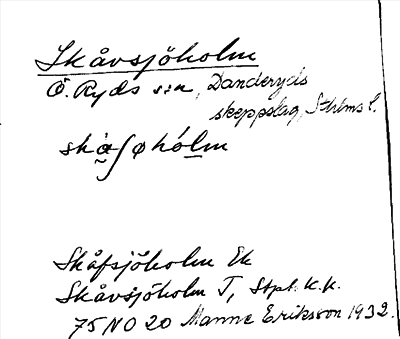 Skåvsjöholm
Ö. Ryds sn, Danderyds
skeppslag, Sthlms l.
skå̀ʃøhól̲m
Skåfsjöholm Ek
Skåvsjöholm T, Stpl. K.K.
75 NO 20 Manne Eriksson 1932.